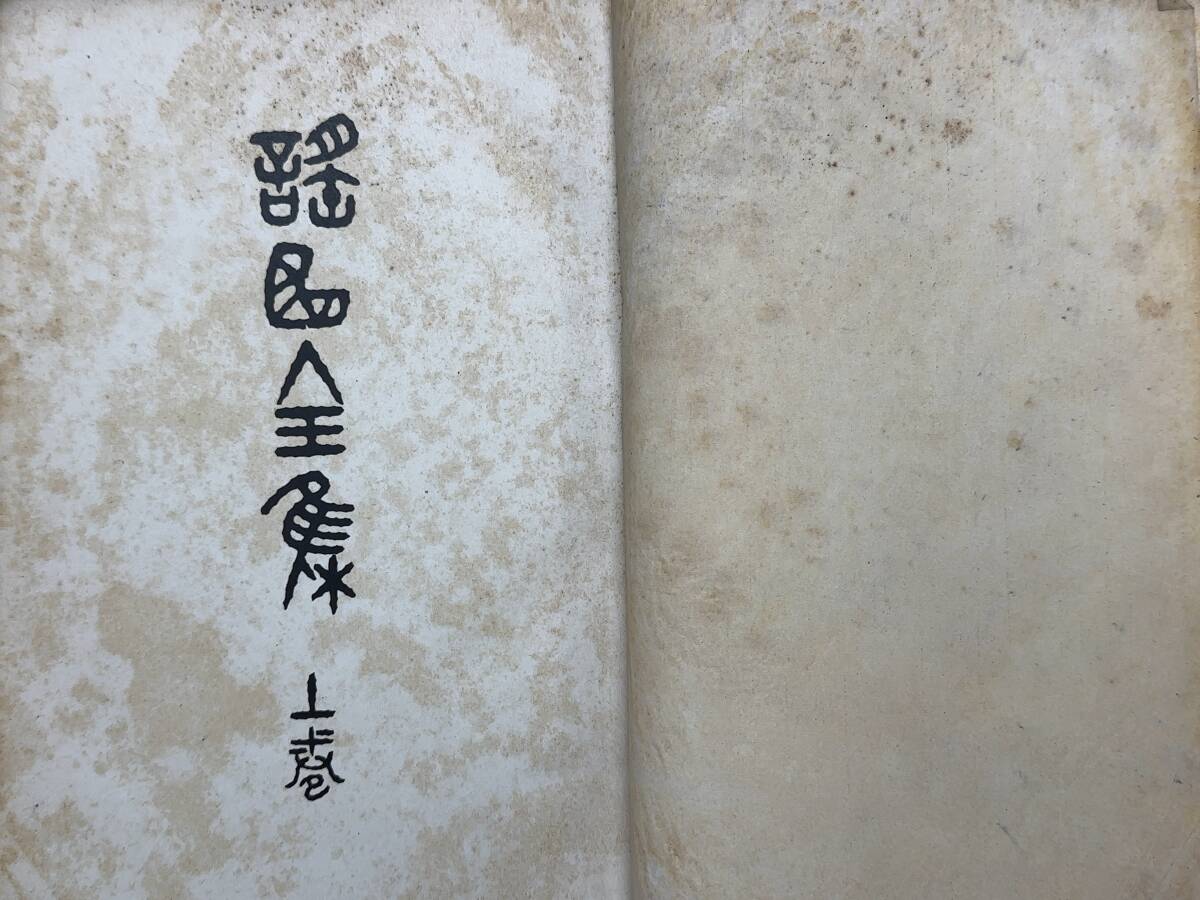 謡曲全集
上巻